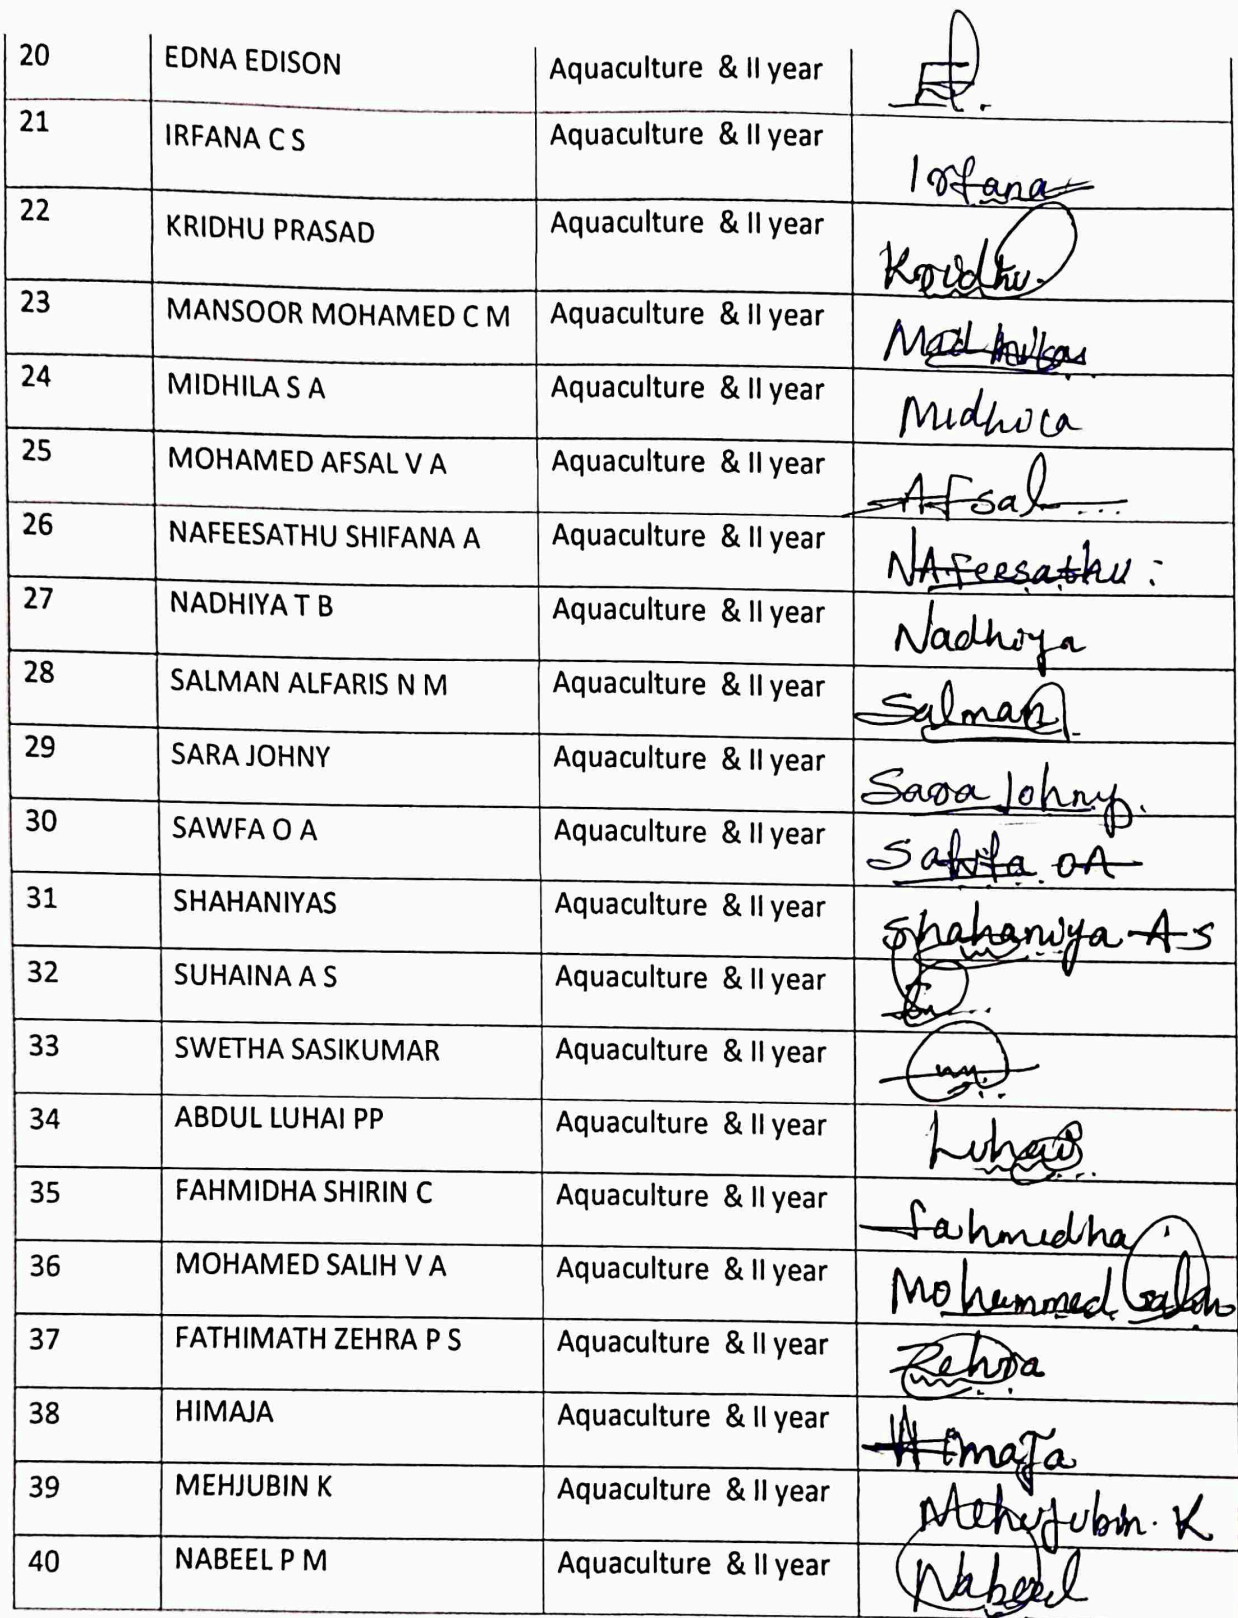 20 EDNA EDISON Aquaculture & II year
21 IRFANA C S Aquaculture & II year Irfana
22 KRIDHU PRASAD Aquaculture & II year Kridhu.
23 MANSOOR MOHAMED C M Aquaculture & II year
24 MIDHILA S A Aquaculture & II year Midhila
25 MOHAMED AFSAL V A Aquaculture & II year AFsal
26 NAFEESATHU SHIFANA A Aquaculture & II year NAFeesathu :
27 NADHIYA T B Aquaculture & II year Nadhiya
28 SALMAN ALFARIS N M Aquaculture & II year Salman
29 SARA JOHNY Aquaculture & II year Sara Johny.
30 SAWFA O A Aquaculture & II year OA
31 SHAHANIYAS Aquaculture & II year Shahaniya A S
32 SUHAINA A S Aquaculture & II year
33 SWETHA SASIKUMAR Aquaculture & II year
34 ABDUL LUHAI PP Aquaculture & II year Luhai
35 FAHMIDHA SHIRIN C Aquaculture & II year fahmidha
36 MOHAMED SALIH V A Aquaculture & II year Mohammed Salih
37 FATHIMATH ZEHRA P S Aquaculture & II year Zehra
38 HIMAJA Aquaculture & II year HimaJa
39 MEHJUBIN K Aquaculture & II year Mehjubin. K
40 NABEEL P M Aquaculture & II year Nabeel